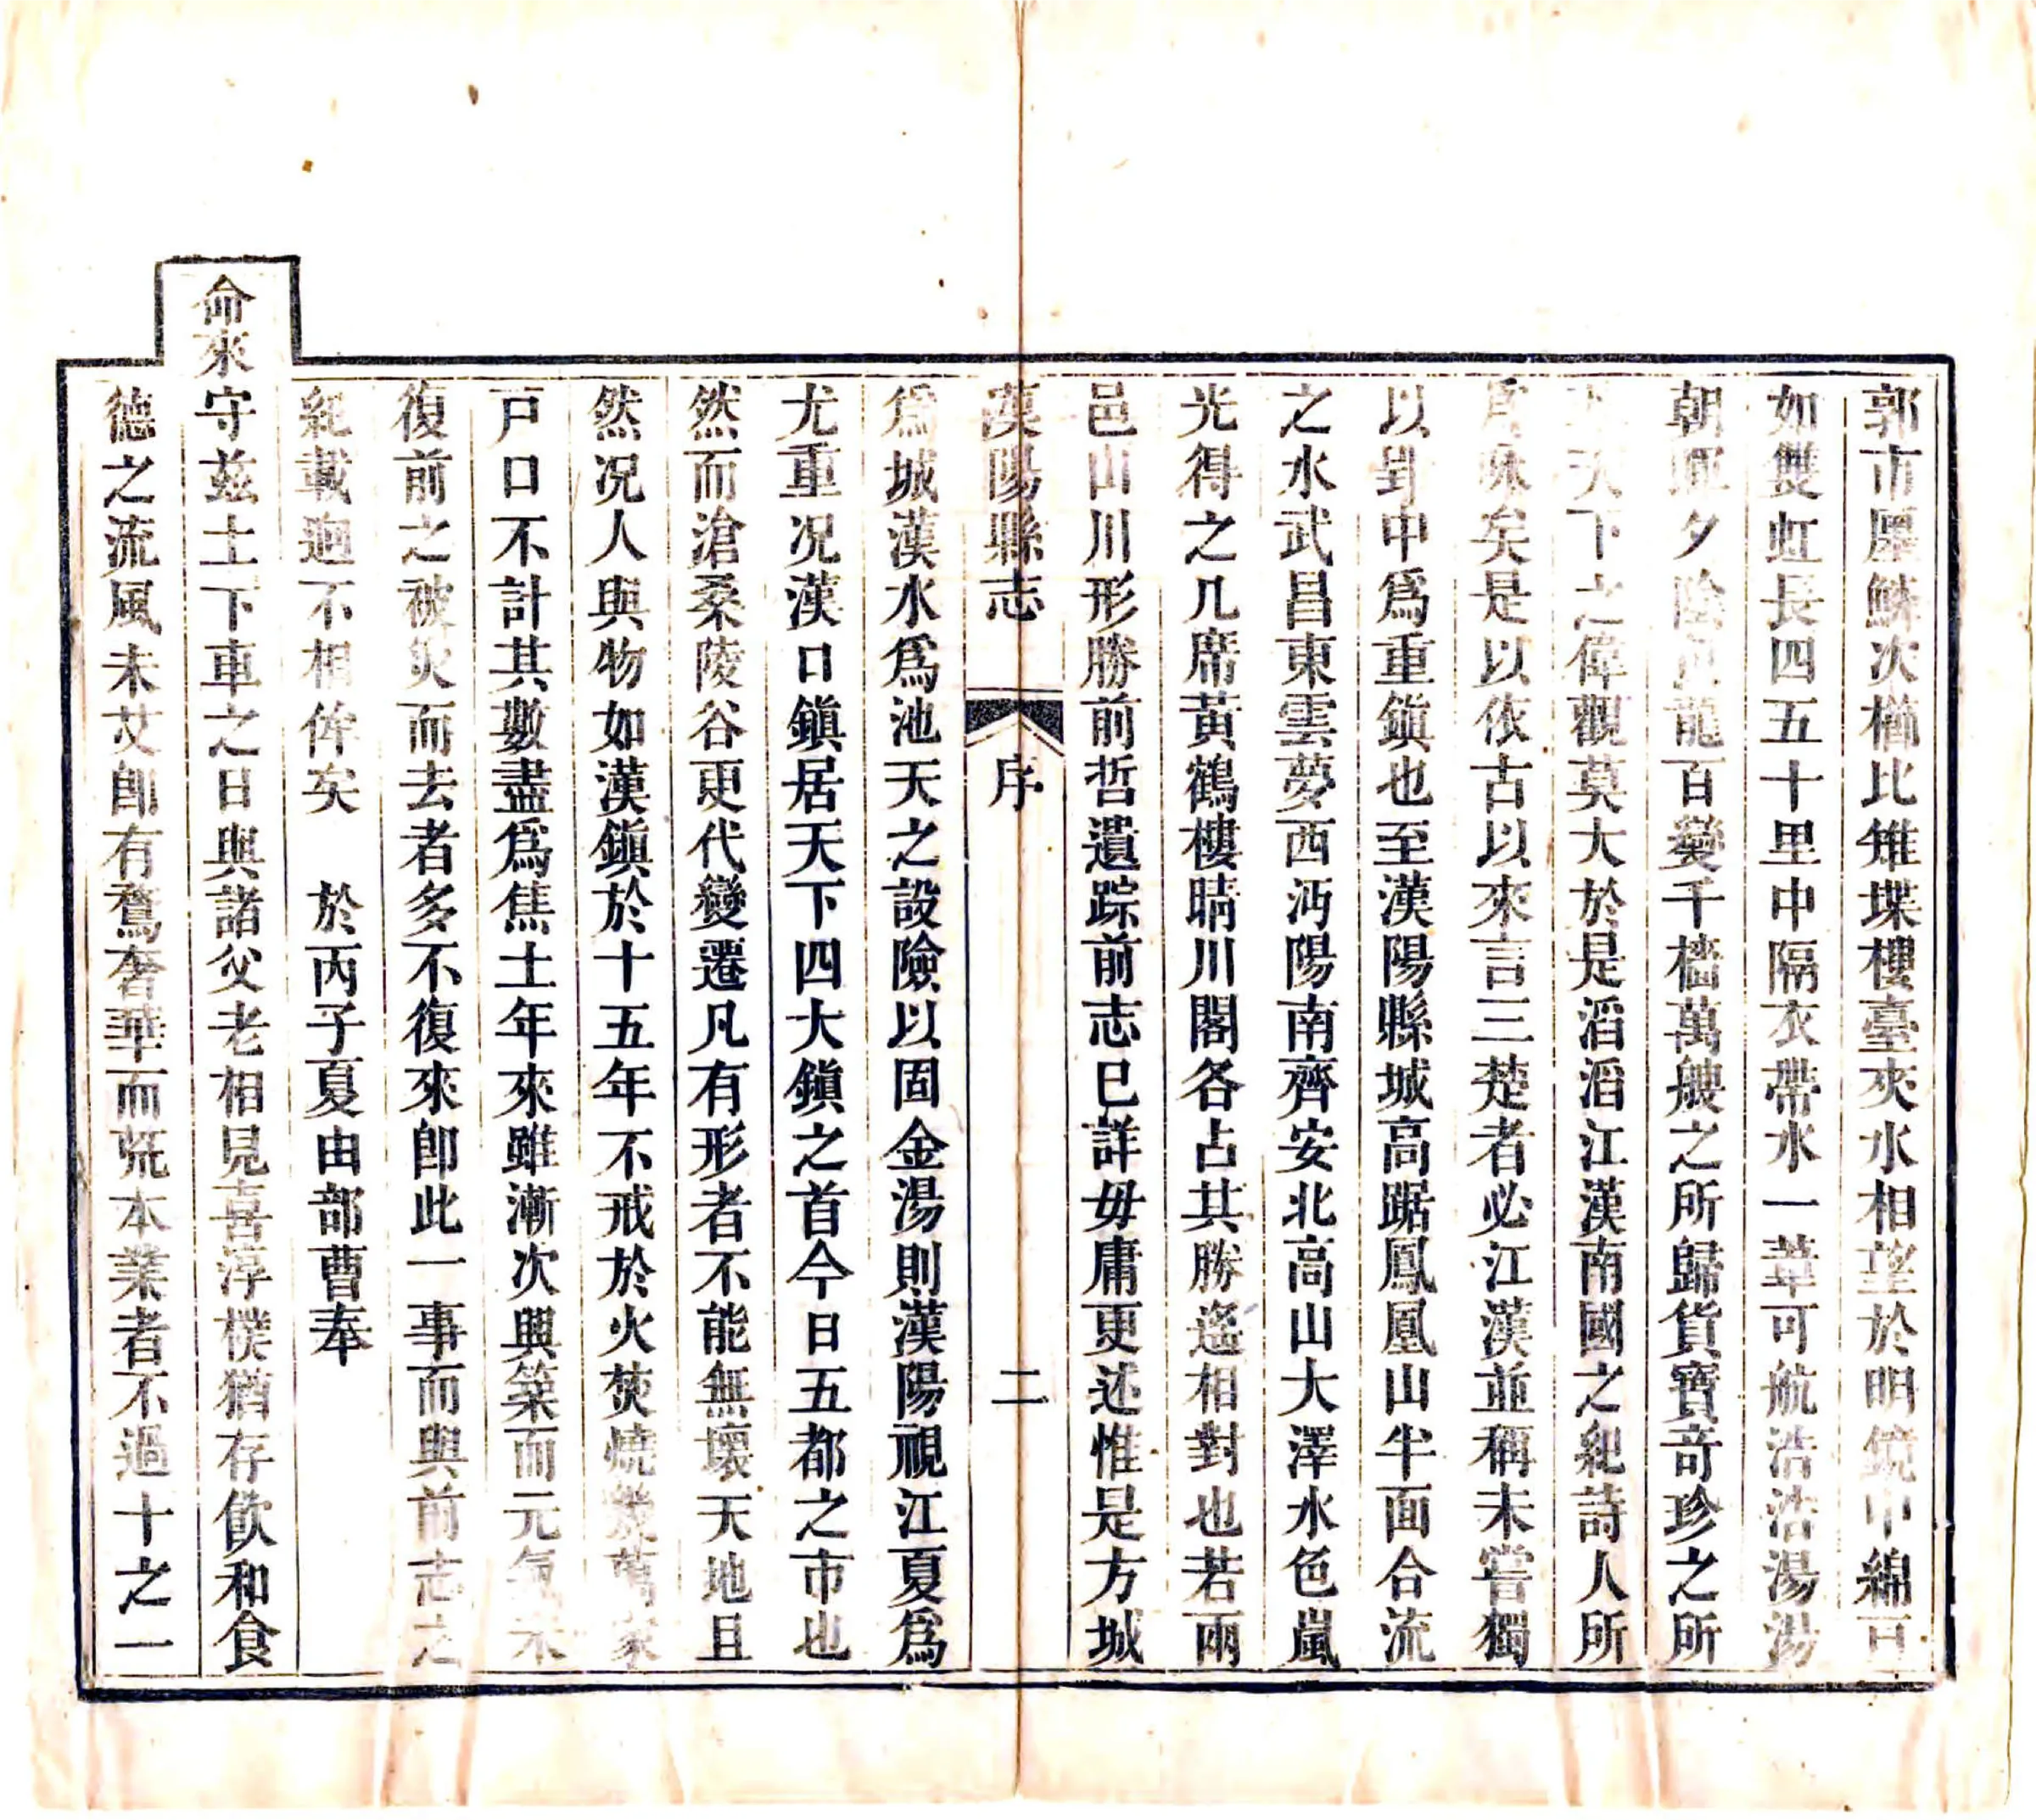 郭市廛鱗次櫛比雉堞樓臺夾水相望於明鏡中綿亘
如雙虹長四五十里中隔衣帶水一葦可航浩浩湯湯
朝 夕陰 龍百變千檣萬艘之所歸貨寶奇珍之所
天下之偉觀莫大於是滔滔江漢南國之紀詩人所
矣是以依古以來言三楚者必江漢並稱未嘗獨
以 中爲重鎭也至漢陽縣城高踞鳳凰山半面合流
之水武昌東雲夢西沔陽南齊安北高山大澤水色嵐
光得之几席黃鶴樓晴川閣各占其勝遙相對也若兩
邑山川形勝前哲遺踪前志已詳毋庸更述惟是方城
漢陽縣志 序 二
爲城漢水爲池天之設險以固金湯則漢陽視江夏爲
尤重况漢口鎭居天下四大鎭之首今日五都之市也
然而滄桑陵谷更代變遷凡有形者不能無壞天地且
然况人與物如漢鎭於十五年不戒於火焚燒幾萬家
戸口不計其數盡爲焦土年來雖漸次興築而元氣未
復前之被災而去者多不復來卽此一事而與前志之
紀載迥不相侔矣 於丙子夏由部曹奉
命來守茲土下車之日與諸父老相見喜淳樸猶存飮和食
德之流風未艾卽有鶩奢華而荒本業者不過十之一